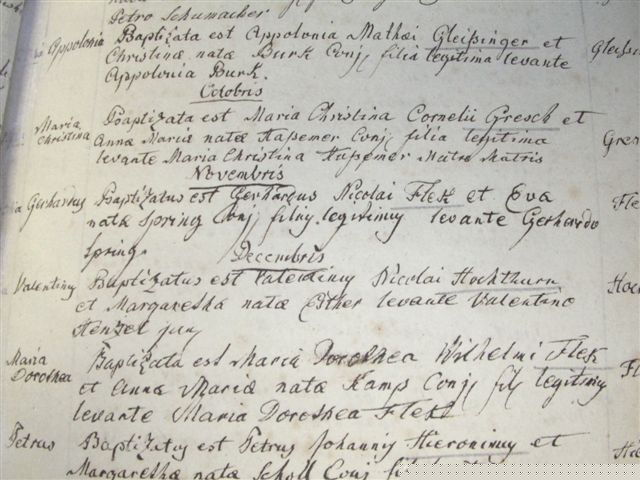 Petro Schumacher
Appolonia Baptizata est Appolonia Mathæi Gleißinger et
Christinæ natæ Burk Conj filia legitima levante
Appolonia Burk.
Octobris
Maria Christina Baptizata est Maria Christina Cornelii Gresch et
Annæ Mariæ natæ Haßemer Conj filia legitima
levante Maria Christina Haßemer Matris
Novembris
Gerhardus Baptizatus est Gerhardus Nicolai Fleck et Eva
nata Spring Conj filius legitimus levante Gerhardo
Spring.
Decembris
Valentinus Baptizatus est Valentinus Nicolai Hochthurn
et Margaretha natæ Esther levante Valentino
Henzel jun
Maria Dorothea Baptizata est Maria Dorothea Wilhelmi Fleck
et Annæ Mariæ natæ Kamp Conj fil legitima
levante Maria Dorothea Fleck
Petrus Baptizatus est Petrus Johannis Hieronimus et
Margarethæ natæ Scholl Conj